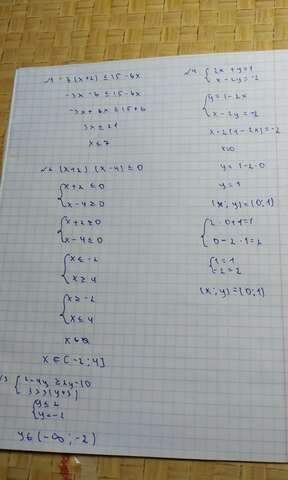 №1 - 3(x+2) ≤ 15 - 6x
-3x - 6 ≤ 15 - 6x
-3x + 6x ≤ 15 + 6
3x ≤ 21
x ≤ 7
№2 (x+2) (x-4) ≤ 0
{x+2 ≤ 0
x-4 ≥ 0
{x+2 ≥ 0
x-4 ≤ 0
{x ≤ -2
x ≥ 4
{x ≥ -2
x ≤ 4
x ∈ [-2; 4]
{2-4y ≥ 2y-10
{y ≤ 2
y = -2
y ∈ (-∞; -2)
№4. {2x + y = 1
x - 2y = -2
{y = 1 - 2x
x - 2y = -2
x - 2(1 - 2x) = -2
x = 0
y = 1 - 2·0
y = 1
(x; y) = (0; 1)
{2·0+1=1
0-2·1=2
{1 = 1
-2 = 2
(x; y) = (0; 1)